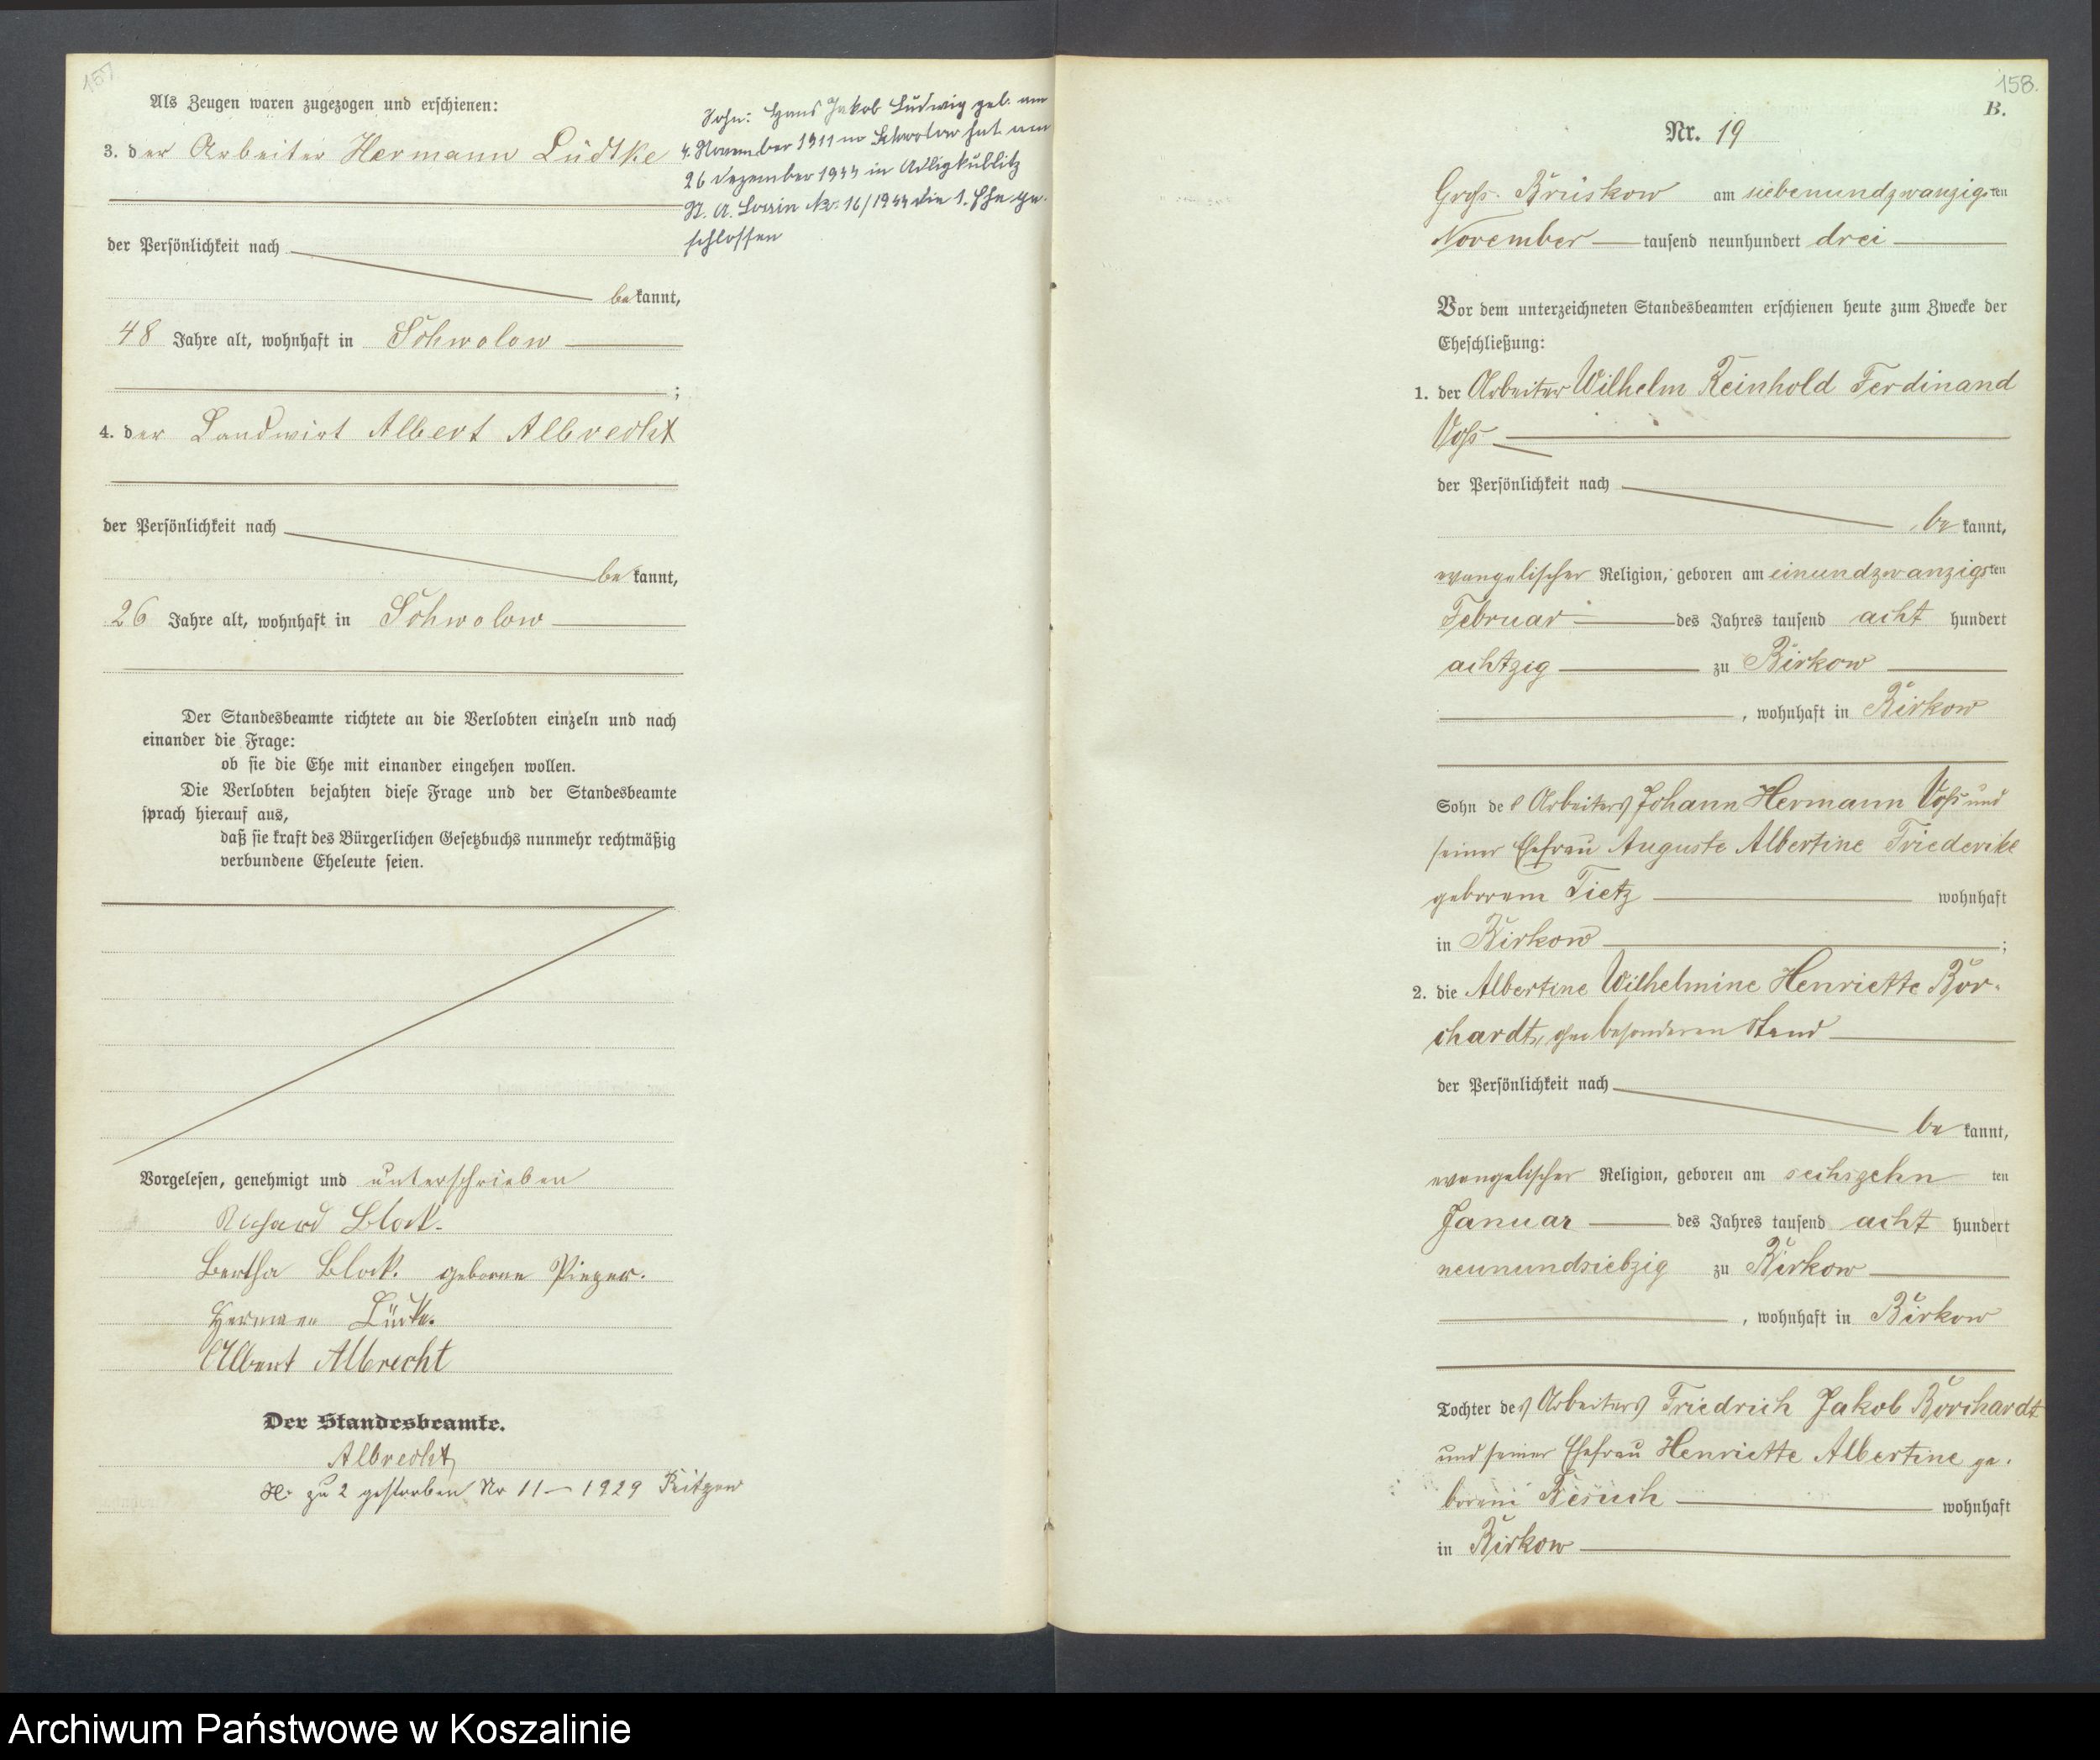 157
Als Zeugen waren zugezogen und erschienen:
3. der Arbeiter Hermann Lüdtke
der Persönlichkeit nach
bekannt,
48 Jahre alt, wohnhaft in Schwolow
;
4. der Landwirt Albert Albrecht
der Persönlichkeit nach
bekannt,
26 Jahre alt, wohnhaft in Schwolow
Sohn: Hans Jakob Ludwig geb. am
4. November 1911 in Schwolow hat am
26 Dezember 1944 in Adligkublitz
St. A. Nr. 16/1944 die 1. Ehe ge-
schlossen
Der Standesbeamte richtete an die Verlobten einzeln und nach
einander die Frage:
ob sie die Ehe mit einander eingehen wollen.
Die Verlobten bejahten diese Frage und der Standesbeamte
sprach hierauf aus,
daß sie kraft des Bürgerlichen Gesetzbuchs nunmehr rechtmäßig
verbundene Eheleute seien.
Vorgelesen, genehmigt und unterschrieben
Richard Block.
Bertha Block. geborene Pieper.
Hermann Lüdke.
Albert Albrecht
Der Standesbeamte.
Albrecht
zu 2 gestorben Nr 11 — 1929 Reitzen
158.
B.
Nr. 19
Groß. Brüskow am siebenundzwanzigsten
November tausend neunhundert drei
Vor dem unterzeichneten Standesbeamten erschienen heute zum Zwecke der
Eheschließung:
1. der Arbeiter Wilhelm Reinhold Ferdinand
Voß
der Persönlichkeit nach
bekannt,
evangelischer Religion, geboren am einundzwanzigsten
Februar des Jahres tausend acht hundert
achtzig zu Birkow
, wohnhaft in Birkow
Sohn des Arbeiters Johann Hermann Voß und
seiner Ehefrau Auguste Albertine Friederike
geborenen Tietz wohnhaft
in Birkow ;
2. die Albertine Wilhelmine Henriette Bor-
chardt, ohne besonderen Stand
der Persönlichkeit nach
bekannt,
evangelischer Religion, geboren am sechszehn ten
Januar des Jahres tausend acht hundert
neunundsiebzig zu Birkow
, wohnhaft in Birkow
Tochter des Arbeiters Friedrich Jakob Borchardt
und seiner Ehefrau Henriette Albertine ge-
borene wohnhaft
in Birkow
Archiwum Państwowe w Koszalinie